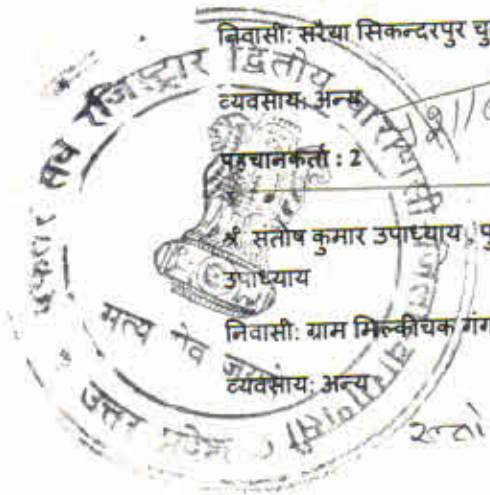 निवासी: सरैया सिकन्दरपुर चु
व्यवसाय: अन्य
पहचानकर्ता : 2
श्री संतोष कुमार उपाध्याय , पु
उपाध्याय
निवासी: ग्राम मिल्कीचक गंग
व्यवसाय: अन्य
सन्तो
दफ्तर सब रजिस्ट्रार द्वितीय वाराणसी
सत्य मेव जयते
उत्तर प्रदेश